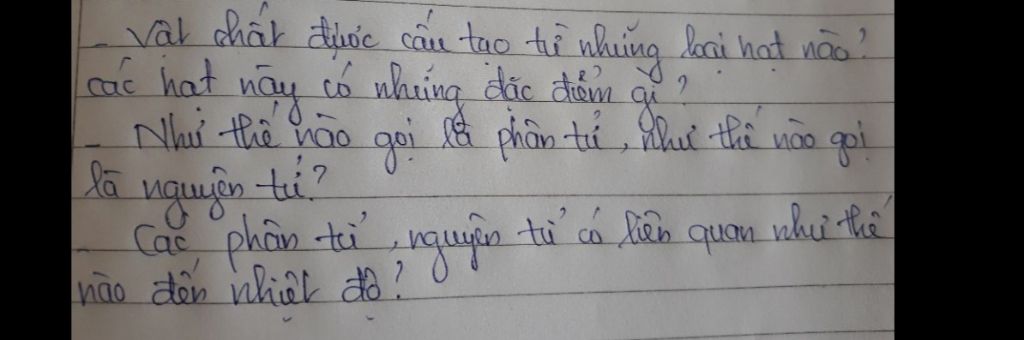 - Vật chất được cấu tạo từ những loại hạt nào?
các hạt này có những đặc điểm gì?
- Như thế nào gọi là phân tử, như thế nào gọi
là nguyên tử?
- Các phân tử, nguyên tử có liên quan như thế
nào đến nhiệt độ?